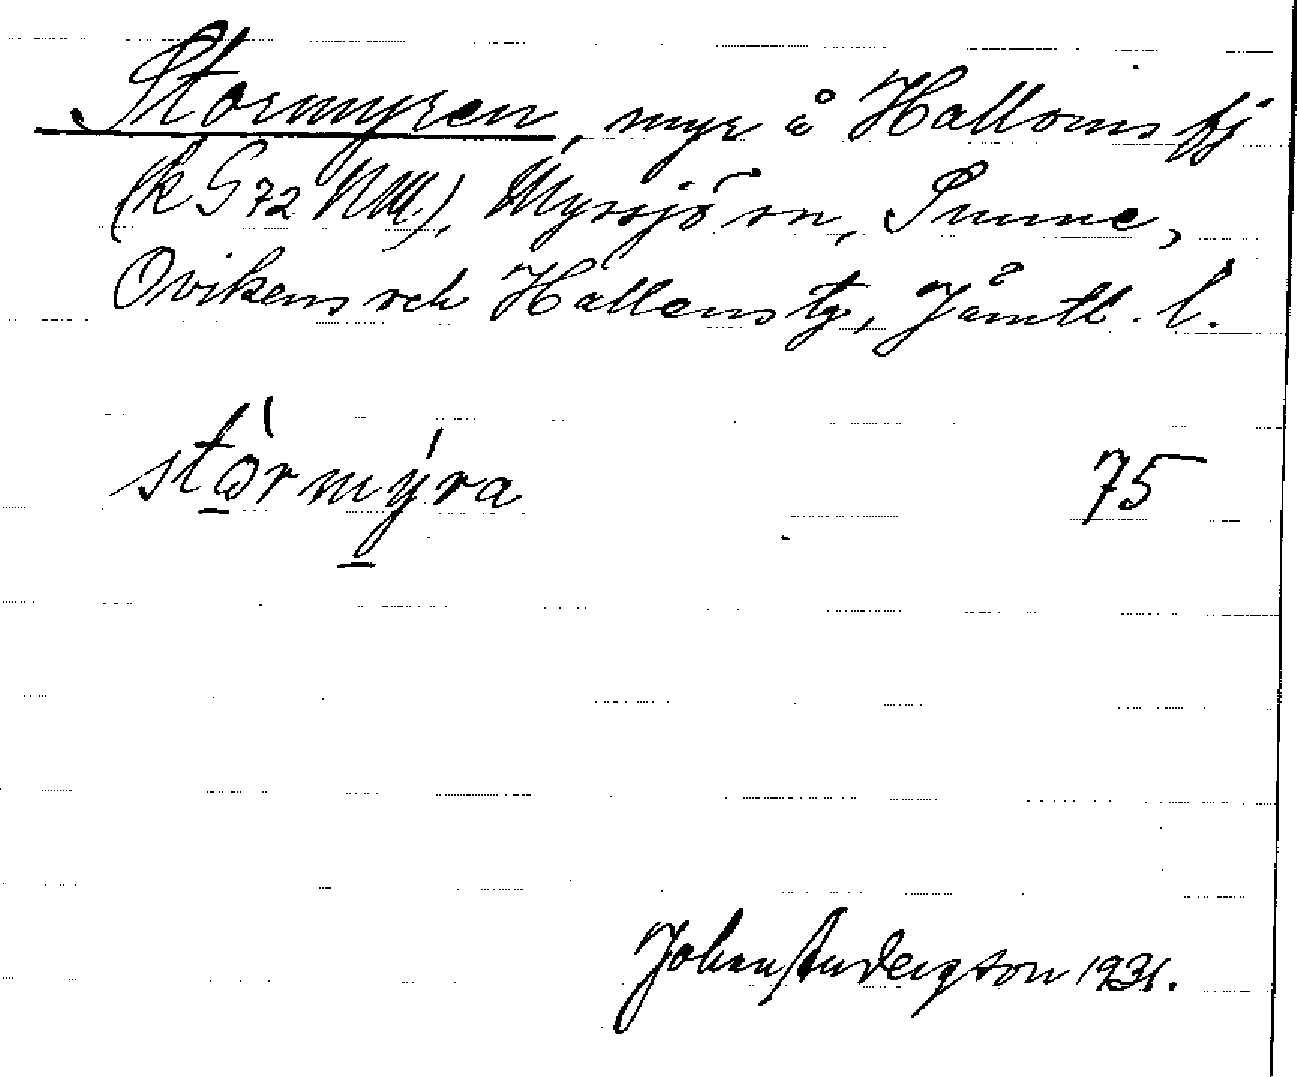 Stormyren, myr å Halloms fj
(k G 72 NM.), Myssjö sn, Sunne,
Ovikens och Hallens tg, Jämtl. l.
stòrmýra 75
Johan Anderson 1931.